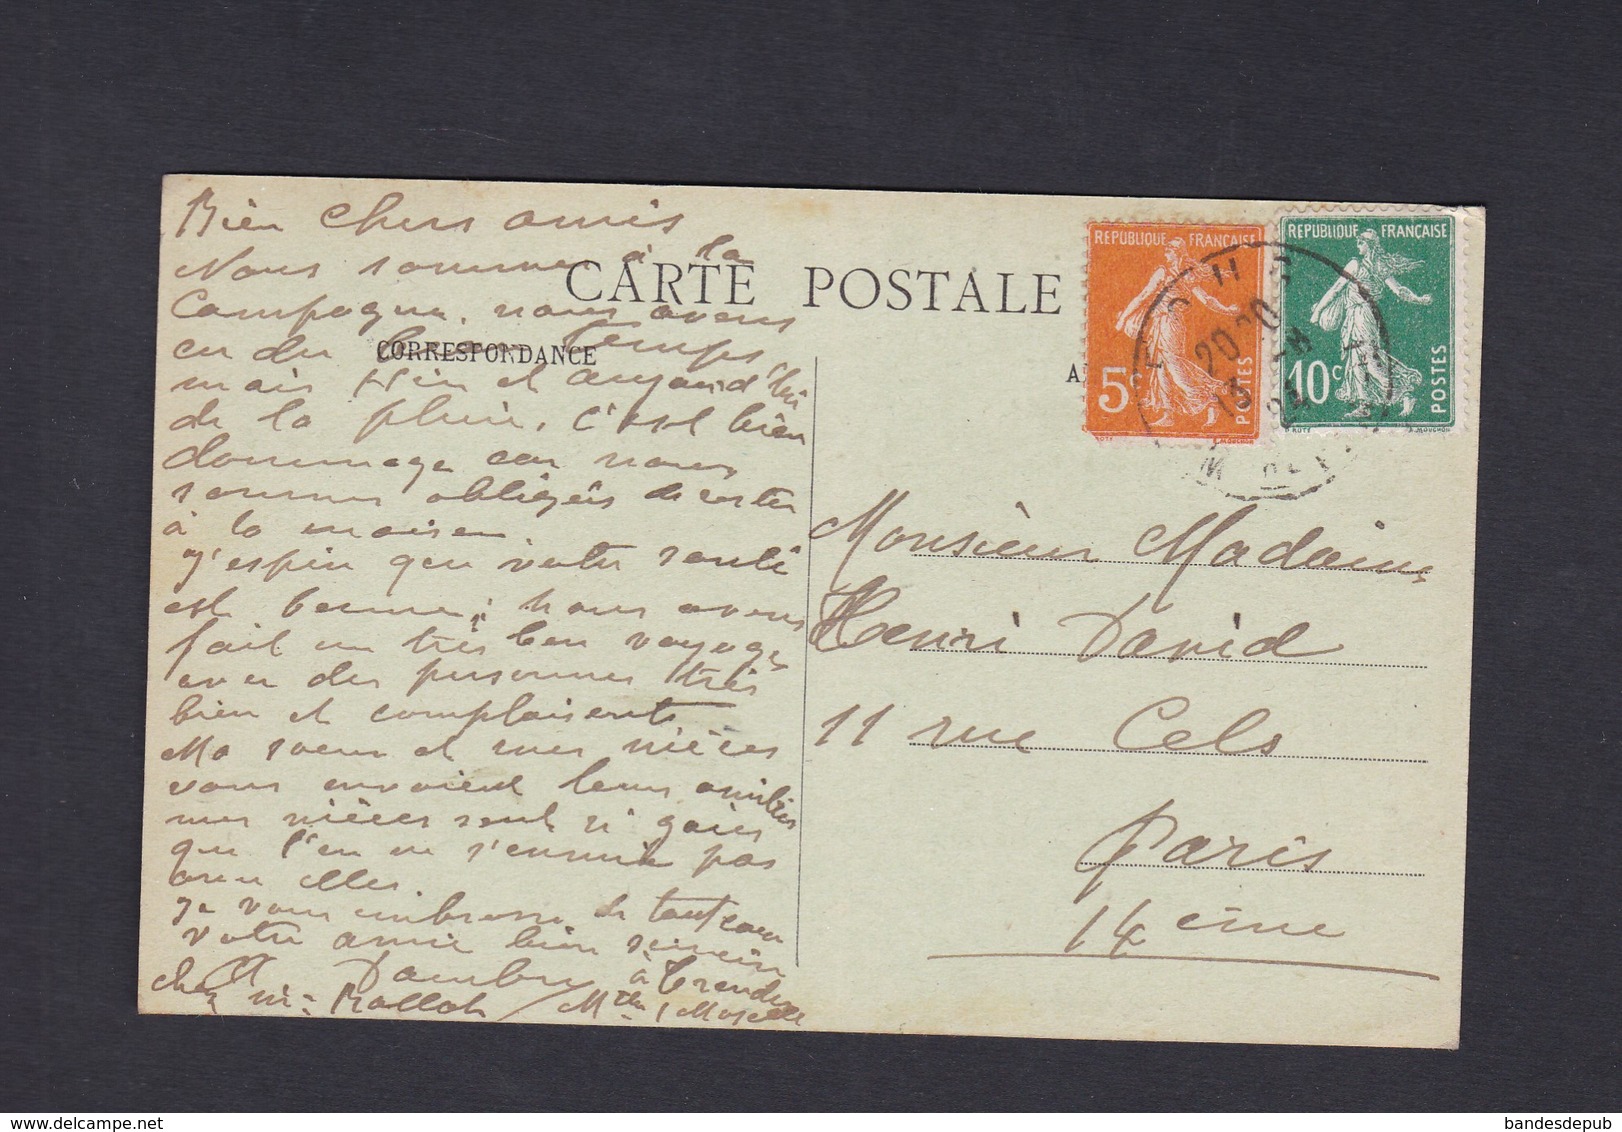 Bien chers amis
Nous sommes à la
CARTE POSTALE
campagne, nous avons
eu du beau temps
CORRESPONDANCE
mais Hier et aujourd'hui
de la pluie, c'est bien
dommage car nous
sommes obligés de rester
à la maison
J'espère que votre santé
est bonne, nous avons
fait un très bon voyage
avec des personnes très
bien et complaisents
Ma soeur et mes nièces
vous envoient leurs amitiés
mes nièces sont si gaies
que l'on ne s'ennuie pas
avec elles.
Je vous embrasse de tout coeur
votre amie bien sincère
chez Mr
REPUBLIQUE FRANÇAISE
5c
POSTES
REPUBLIQUE FRANÇAISE
10c
POSTES
20 20
13
Monsieur Madame
Henri David
11 rue Cels
Paris
14 eme
delcampe.net
bandesdepub